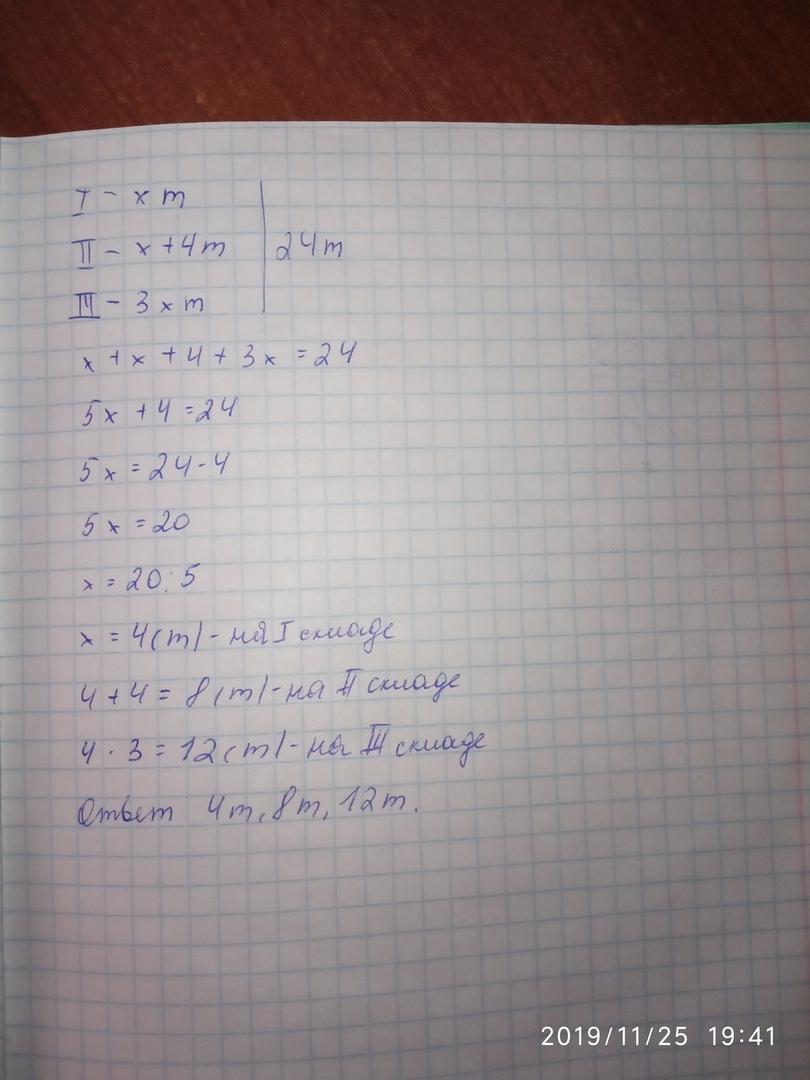 I - x т
II - x + 4 т
24 т
III - 3 x т
x + x + 4 + 3x = 24
5x + 4 = 24
5x = 24 - 4
5x = 20
x = 20 : 5
x = 4 (т) - на I складе
4 + 4 = 8 (т) - на II складе
4 · 3 = 12 (т) - на III складе
Ответ 4т, 8т, 12т.
2019/11/25 19:41